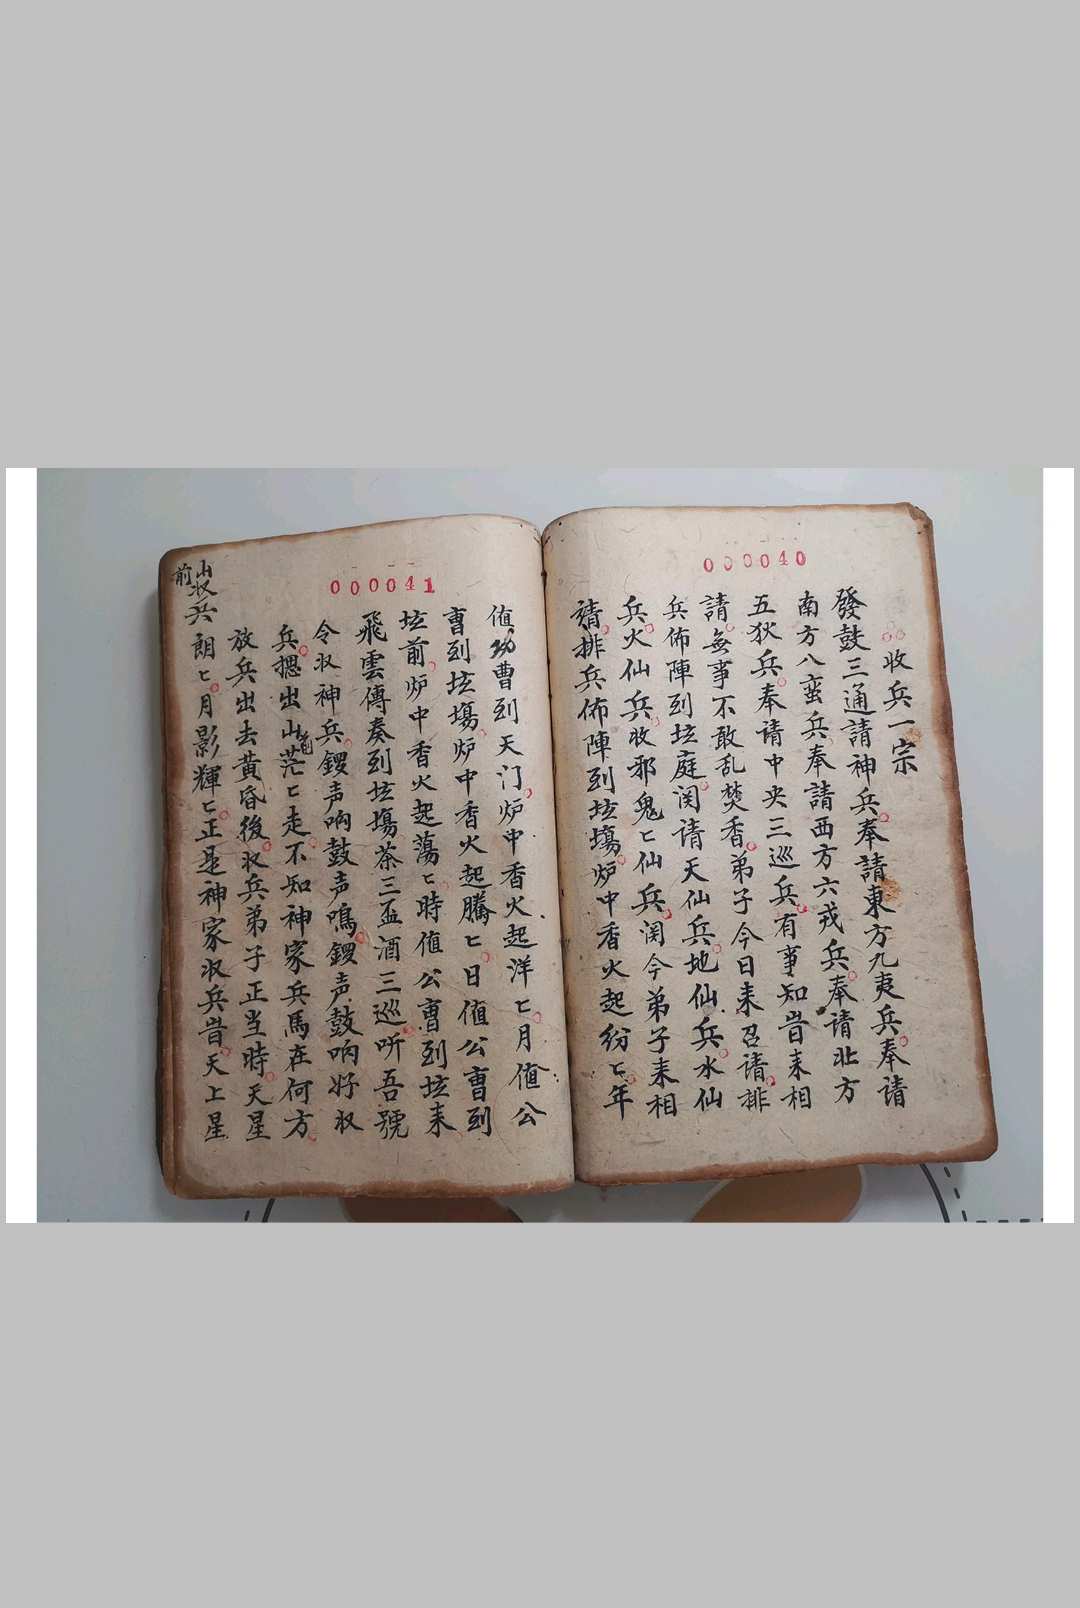 000040
收兵一宗
發鼓三通請神兵奉請東方九夷兵奉请
南方八蛮兵奉請西方六戎兵奉请北方
五狄兵奉请中央三巡兵有事知昔来相
請無事不敢乱焚香弟子今日来召请排
兵佈陣到坛庭闵请天仙兵地仙兵水仙
兵火仙兵收邪鬼匕仙兵闵今弟子来相
请排兵佈陣到坛塲炉中香火起纷匕年
000041
值功曹到天门炉中香火起洋匕月值公
曹到坛塲炉中香火起騰匕日值公曹到
坛前炉中香火起蕩匕時值公曹到坛来
飛雲傳奏到坛塲茶三盃酒三巡听吾號
令収神兵鑼声响鼓声鳴鑼声鼓响好収
兵摁出山茫匕走不知神家兵馬在何方
放兵出去黄昏後収兵弟子正当時天星
朗匕月影輝匕正是神家収兵昔天上星
山前収兵